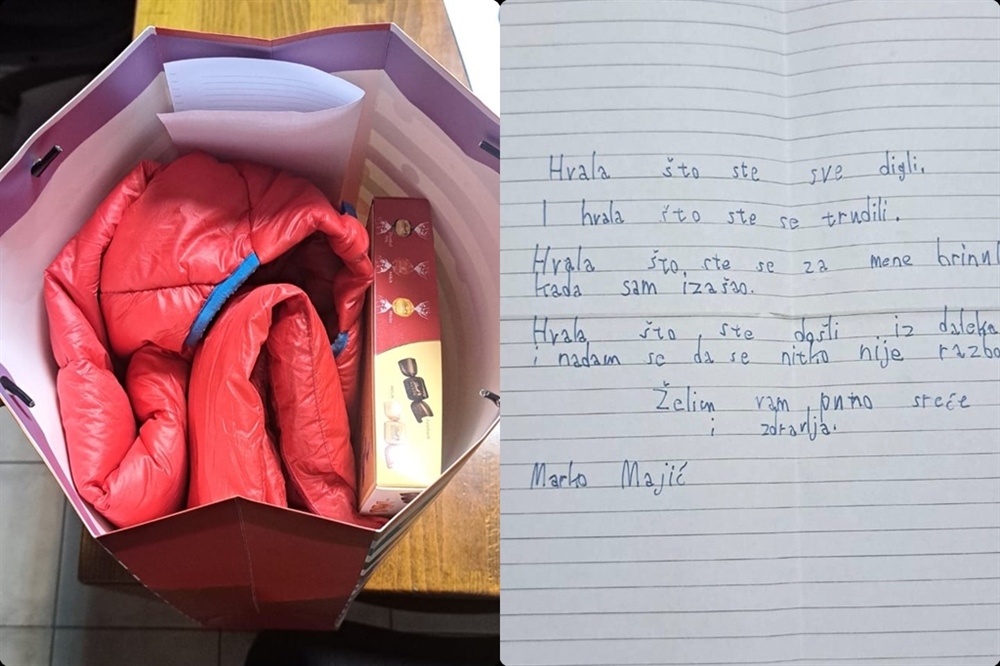 Hvala što ste sve digli.
I hvala što ste se trudili.
Hvala što ste se za mene brinul
kada sam izašao.
Hvala što ste došli iz daleka
i nadam se da se nitko nije razbo
Želim vam puno sreće
i zdravlja.
Marko Majić